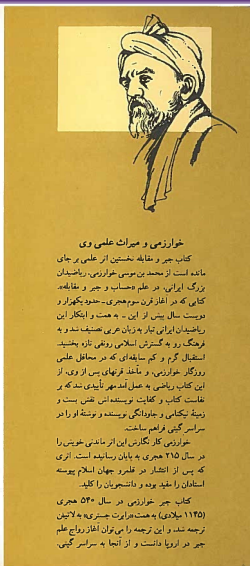 خوارزمی و میراث علمی وی
کتاب جبر و مقابله نخستین اثر علمی بر جای
مانده است از محمد بن موسی خوارزمی، ریاضیدان
بزرگ ایرانی، در علم «حساب و جبر و مقابله».
کتابی که در آغاز قرن سوم هجری ـ حدود یکهزار و
دویست سال پیش از این ـ به همت و ابتکار این
ریاضیدان ایرانی تبار به زبان عربی تصنیف شد و به
فرهنگ رو به گسترش اسلامی رونقی تازه بخشید.
استقبال گرم و کم سابقه‌ای که در محافل علمی
روزگار خوارزمی، و مآخذ قرنهای پس از وی، از
این کتاب ریاضی به عمل آمد مهر تأییدی شد که بر
نفاست کتاب و کفایت نویسنده‌اش نقش بست و
زمینهٔ نیکنامی و جاودانگی نویسنده و نوشتهٔ او را در
سراسر گیتی فراهم ساخت.
خوارزمی کار نگارش این اثر ماندنی خویش را
در سال ۲۱۵ هجری به پایان رسانیده است. اثری
که پس از انتشار در قلمرو جهان اسلام پیوسته
استادان را مفید بوده و دانشجویان را کلید.
کتاب جبر خوارزمی در سال ۵۴۰ هجری
(۱۱۴۵ میلادی) به همت «رابرت چستری» به لاتین
ترجمه شد، و این ترجمه را می‌توان آغاز رواج علم
جبر در اروپا دانست و از آنجا به سراسر گیتی.